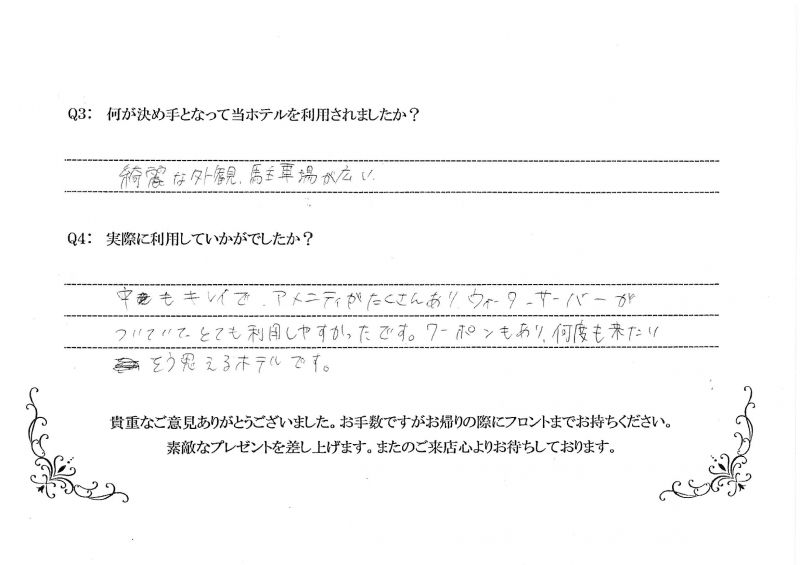 Q3: 何が決め手となって当ホテルを利用されましたか？
綺麗な外観、駐車場が広い
Q4: 実際に利用していかがでしたか？
中もキレイで、アメニティがたくさんあり ウォーターサーバーが
ついていて とても利用しやすかったです。クーポンもあり、何度も来たい
そう思えるホテルです。
貴重なご意見ありがとうございました。お手数ですがお帰りの際にフロントまでお持ちください。
素敵なプレゼントを差し上げます。またのご来店心よりお待ちしております。